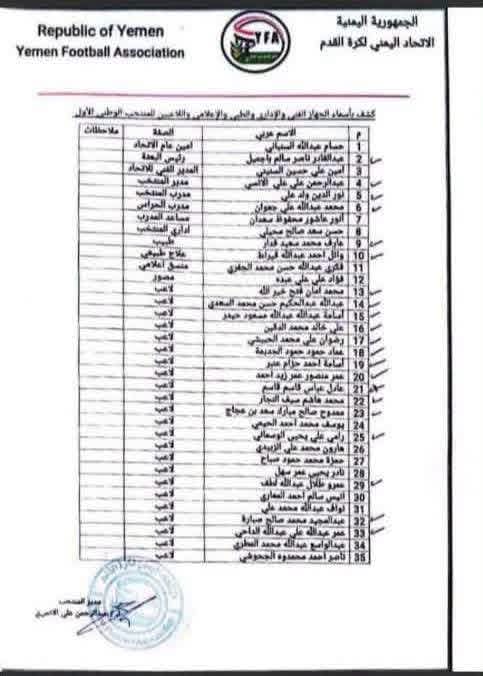 Republic of Yemen
Yemen Football Association
YFA
الجمهورية اليمنية
الاتحاد اليمني لكرة القدم
كشف بأسماء الجهاز الفني والإداري والطبي والإعلامي واللاعبين للمنتخب الوطني الأول
م الاسم عربي الصفة ملاحظات
1 حسام عبدالله السنباني امين عام الاتحاد
2 عبدالقادر ناصر سالم باجميل رئيس البعثة
3 امين علي حسين السنيني المدير الفني للاتحاد
4 عبدالرحمن علي علي الآنسي مدير المنتخب
5 نور الدين ولد علي مدرب المنتخب
6 محمد عبدالله علي جعوان مدرب الحراس
7 أنور عاشور محفوظ سعدان مساعد المدرب
8 حسن سعد صالح اداري المنتخب
9 عارف محمد سعيد طبيب
10 وائل احمد عبدالله قيراط علاج طبيعي
11 فكري عبدالله حسن محمد الجفري منسق اعلامي
12 فؤاد علي علي عبده مصور
13 محمد أمان فتح خير الله لاعب
14 عبدالله عبدالحكيم حسن محمد السعدي لاعب
15 أسامة عبدالله عبدالله مسعود حيدر لاعب
16 علي خالد محمد الدقين لاعب
17 رضوان علي محمد الحبيشي لاعب
18 عماد حمود حمود الجديمة لاعب
19 أسامة احمد حزام عنبر لاعب
20 عمر منصور عمر زيد احمد لاعب
21 عادل عباس قاسم قاسم لاعب
22 محمد هاشم سيف النجار لاعب
23 ممدوح صالح مبارك سعد بن عجاج لاعب
24 يوسف محمد احمد لاعب
25 رامي علي يحيى الوسماني لاعب
26 هارون محمد علي الزبيدي لاعب
27 حمزة محمد حمود صباح لاعب
28 نادر يحيى عمر سهل لاعب
29 عمرو طلال عبدالله لطف لاعب
30 انيس سالم احمد المعاري لاعب
31 نواف عبدالله محمد علي لاعب
32 عبدالمجيد محمد صالح صبارة لاعب
33 عمر عبدالله علي عبدالله الداحي لاعب
34 عبدالواسع عبدالله محمد المطري لاعب
35 ناصر احمد محمدوه الجحوشي لاعب
مدير المنتخب
عبدالرحمن علي الآنسي